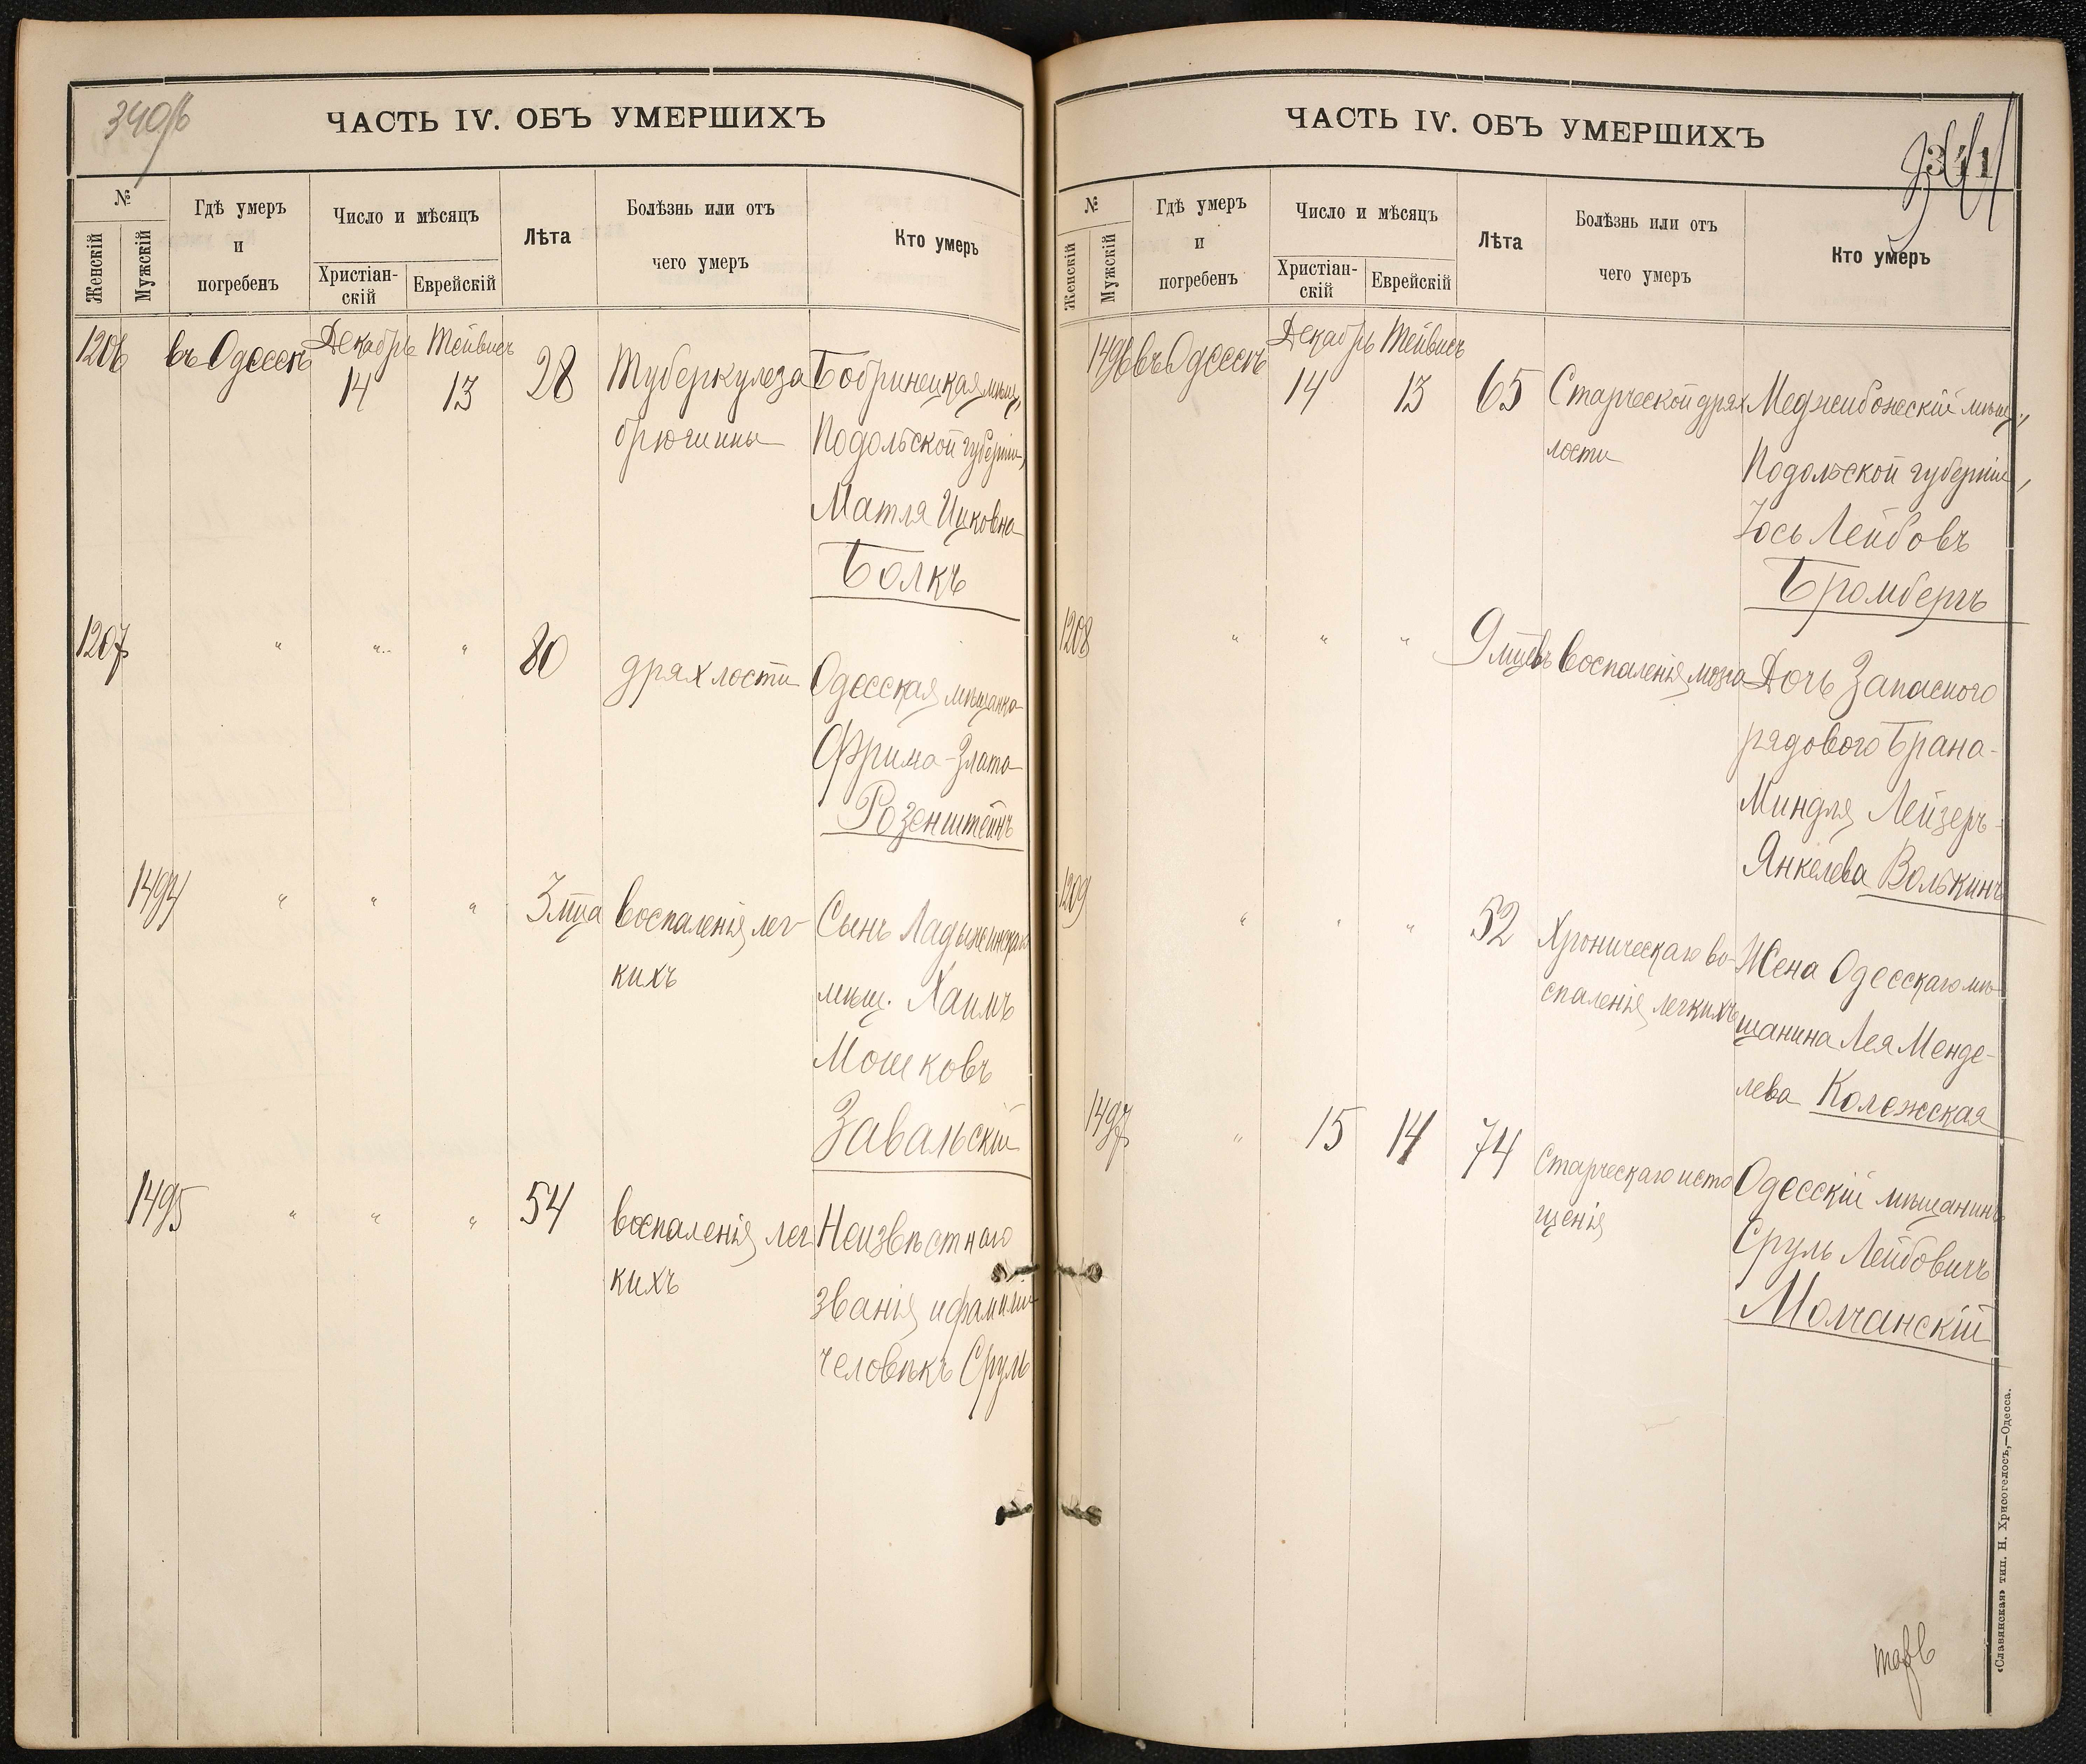 340/б
ЧАСТЬ IV. ОБЪ УМЕРШИХЪ
№
Женскій
Мужскій
Гдѣ умеръ
и
погребенъ
Число и мѣсяцъ
Христіан-
скій
Еврейскій
Лѣта
Болѣзнь или отъ
чего умеръ
Кто умеръ
1206 въ Одессѣ Декабрь 14 Тейвисъ 13 28
Туберкулеза
брюшины
Бобринецкая мѣщ.,
Подольской губерніи,
Матля Ицковна
Болкъ
1207 " " " 80 дряхлости
Одесская мѣщанка
Фрима-Злата
Розенштейнъ
1494 " " " 3 мца
воспаленія лег-
кихъ
Сынъ Ладыжинскаго
мѣщ. Хаимъ
Мошковъ
Завальскій
1495 " " " 54
воспаленія лег
кихъ
Неизвѣстнаго
званія и фамиліи
человѣкъ Сруль
ЧАСТЬ IV. ОБЪ УМЕРШИХЪ
341
341
№
Женскій
Мужскій
Гдѣ умеръ
и
погребенъ
Число и мѣсяцъ
Христіан-
скій
Еврейскій
Лѣта
Болѣзнь или отъ
чего умеръ
Кто умеръ
1496 въ Одессѣ Декабрь 14 Тейвисъ 13 65
Старческой дрях
лости
Меджибожескій мѣщ.,
Подольской губерніи,
Юсь Лейбовъ
Бромбергъ
1208 " " " 9 мцевъ воспаленія мозга
Дочь Запасного
рядового Брана-
Миндля Лейзеръ-
Янкелева Волькинъ
1209 " " " 52
Хроническаго во-
спаленія легкихъ
Жена Одесскаго мѣ-
щанина Лея Менде-
лева Колежская
1497 " 15 14 74
Старческаго исто
щенія
Одесскій мѣщанинъ
Сруль Лейбовичъ
Молчанскій
«Славянская» тип. Н. Хрисогелосъ,—Одесса.